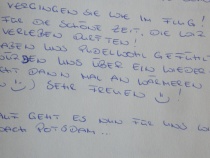 VERGINGEN SIE WIE IM FLUG!
FÜR DIE SCHÖNE ZEIT, DIE WIR
VERLEBEN DURFTEN!
UNS PUDELWOHL GEFÜHLT
UNS ÜBER EIN WIEDER
DANN MAL AN WÄRMEREN
SEHR FREUEN !
GEHT ES NUN FÜR UNS
NACH POTSDAM...